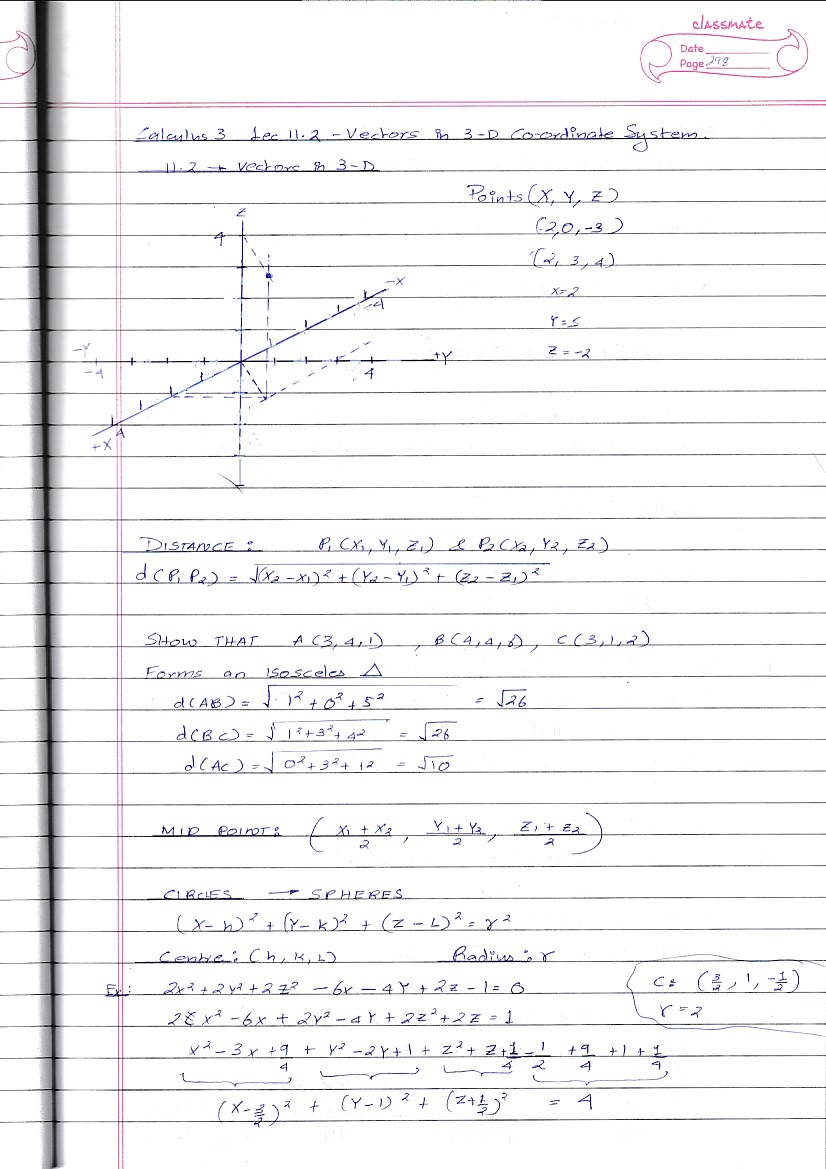 classmate
Date
Page 298
Calculus 3 Lec 11.2 - Vectors in 3-D Co-ordinate System.
11.2 → Vectors in 3-D
Points (X, Y, Z)
(2,0,-3)
(2, 3, 4)
X=2
Y=5
Z=-2
Z
4
-X
-4
-Y
-4
+Y
4
4
+X
DISTANCE : P₁ (X₁, Y₁, Z₁) & P₂ (X₂, Y₂, Z₂)
d(P₁ P₂) = √(X₂-X₁)² + (Y₂-Y₁)² + (Z₂-Z₁)²
SHOW THAT A (3,4,1) , B(4,4,6), C(3,1,2)
Forms an isosceles △
d(AB) = √1² + 0² + 5² = √26
d(BC) = √1²+3²+4² = √26
d(AC) = √0²+3²+12 = √10
MID POINT : (X₁ + X₂ / 2 , Y₁ + Y₂ / 2 , Z₁ + Z₂ / 2)
CIRCLES → SPHERES
(X-h)² + (Y-k)² + (Z-L)² = r²
Centre : (h, k, L) Radius : r
Ex: 2x² + 2y² + 2z² - 6x - 4Y + 2z - 1 = 0
C: (3/2, 1, -1/2)
r = 2
2x² - 6x + 2Y² - 4Y + 2z² + 2z = 1
x² - 3x + 9/4 + Y² - 2Y + 1 + z² + z + 1/4 = 1/2 + 9/4 + 1 + 1/4
(X-3/2)² + (Y-1)² + (Z+1/2)² = 4